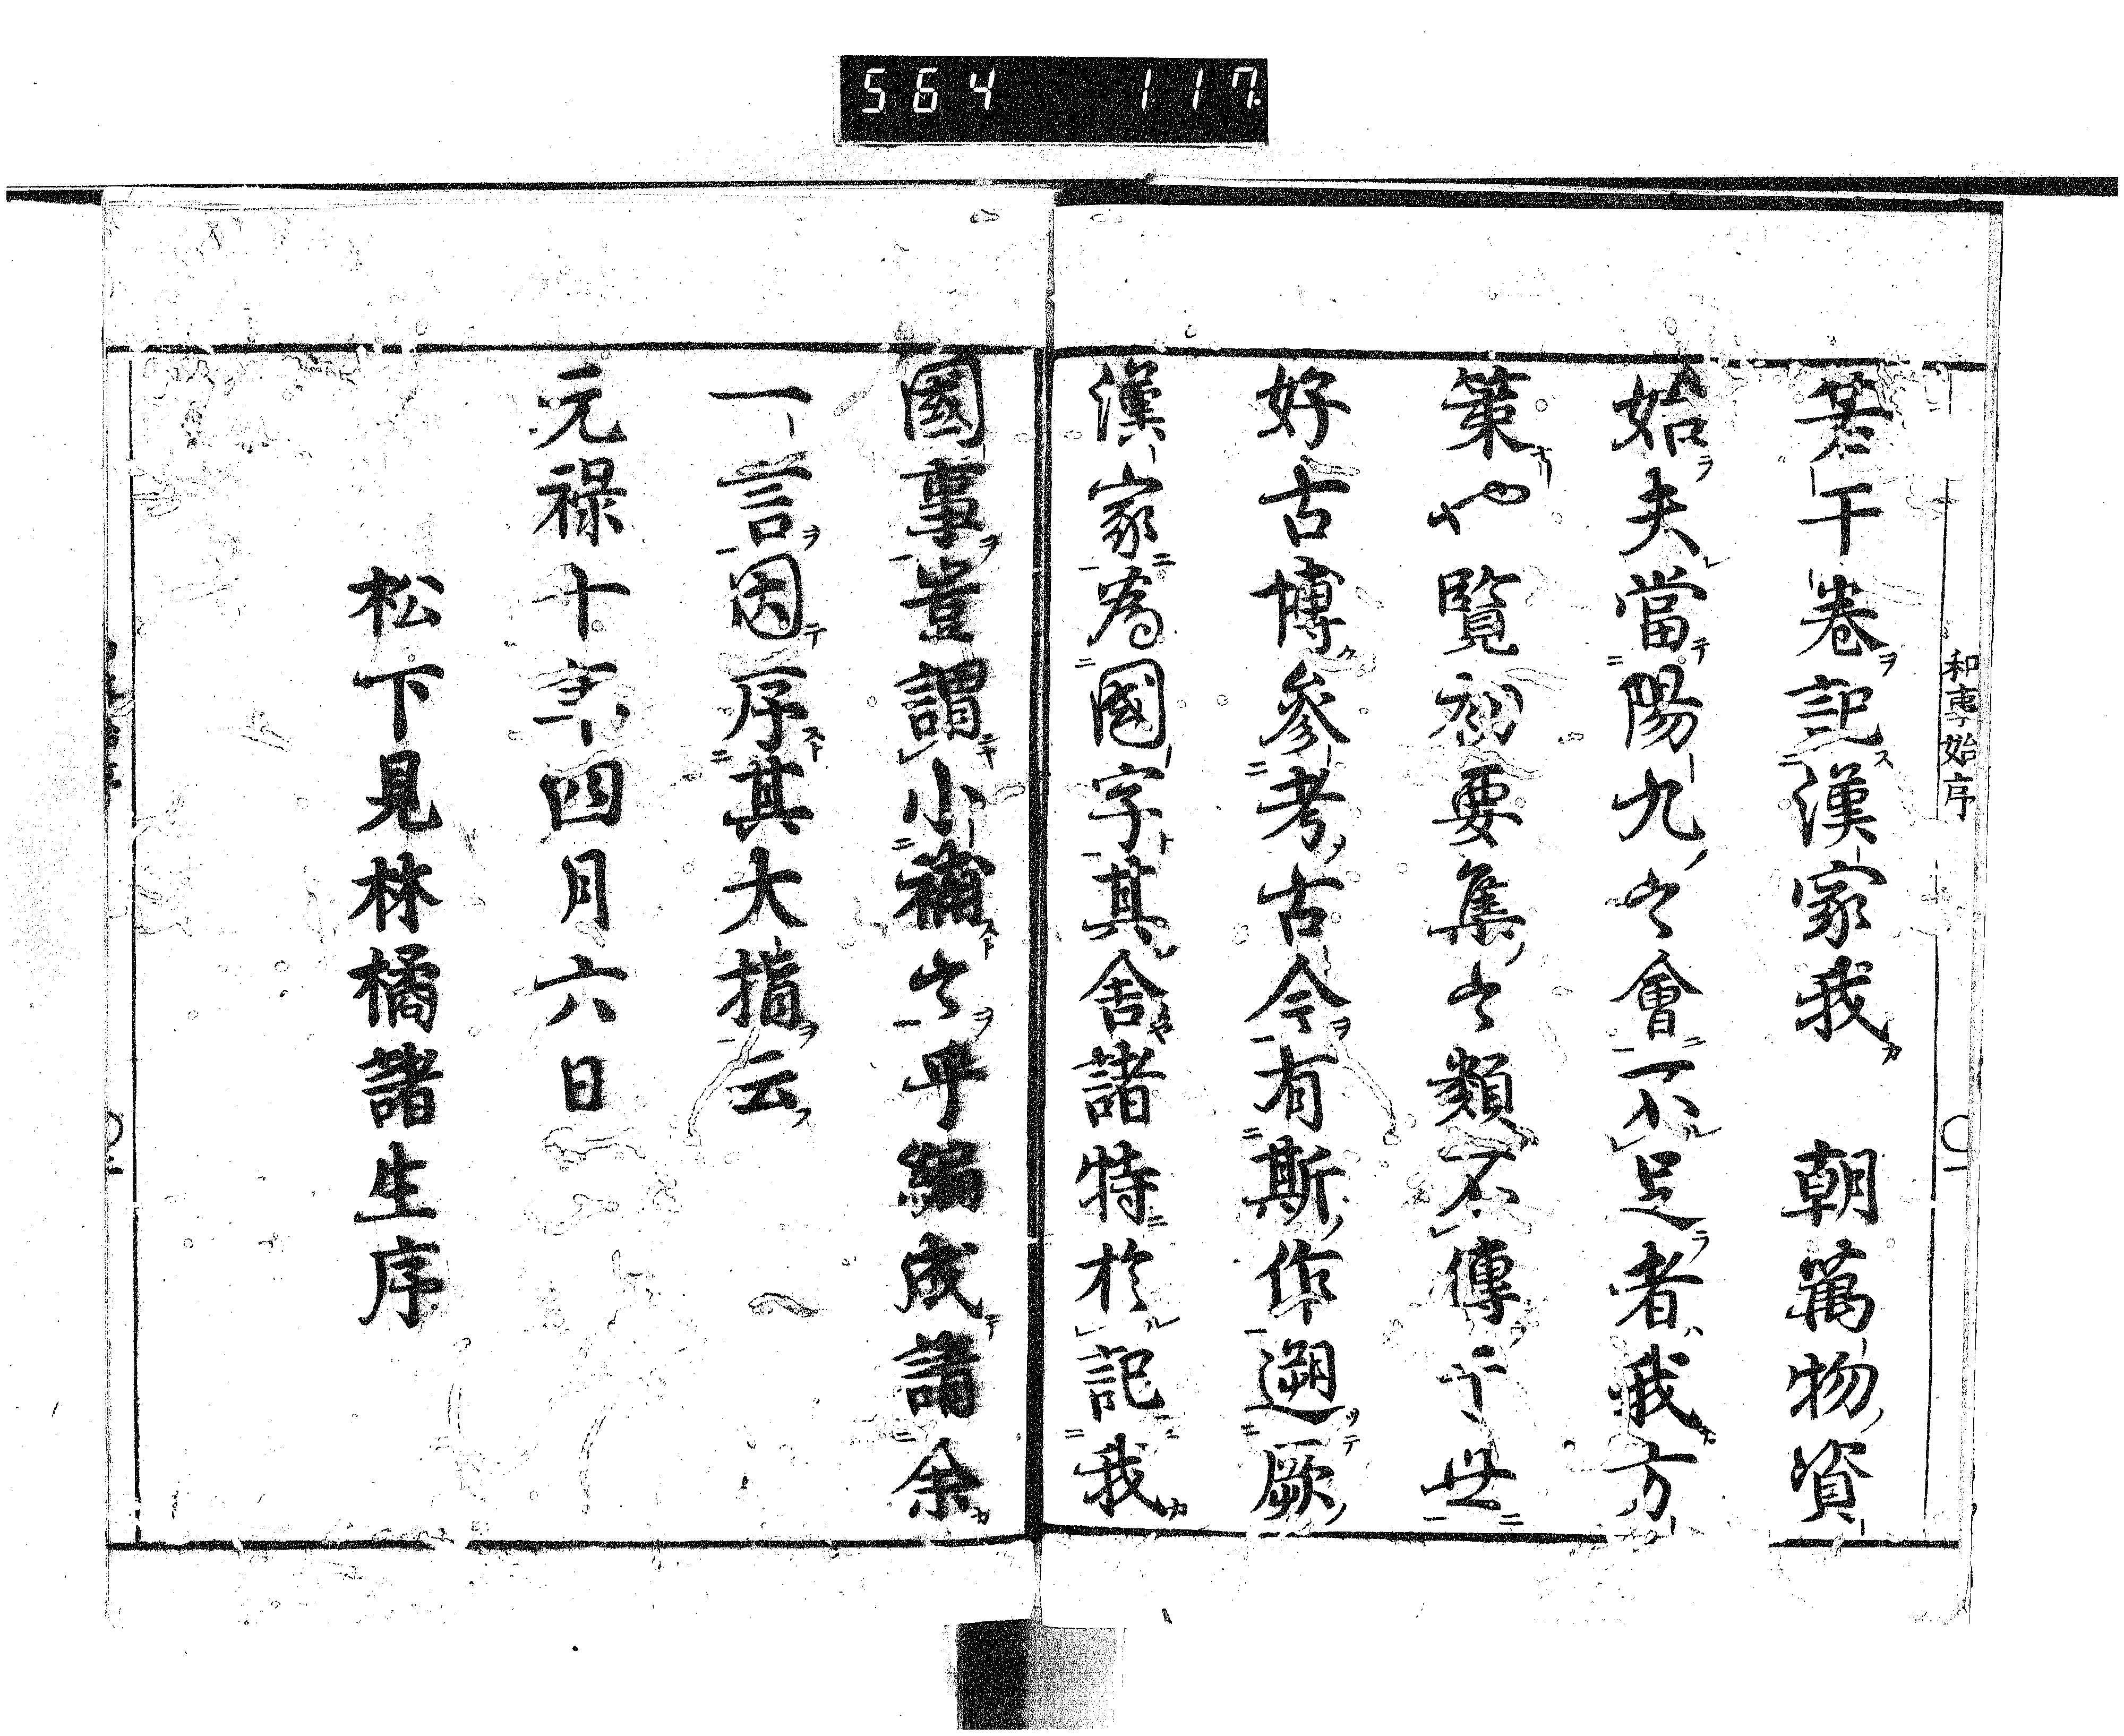 564 117
和事始序
若干卷記漢家我 朝萬物資
始夫當陽九之會不足者我方
策也覽初要集之類不傳于世
好古博參考古今有斯作遡厥
漢家為國字其舍諸特於記我
國事豈謂小補之乎編成請余
一言因序其大指云
元祿十年四月六日
松下見林橘諸生序